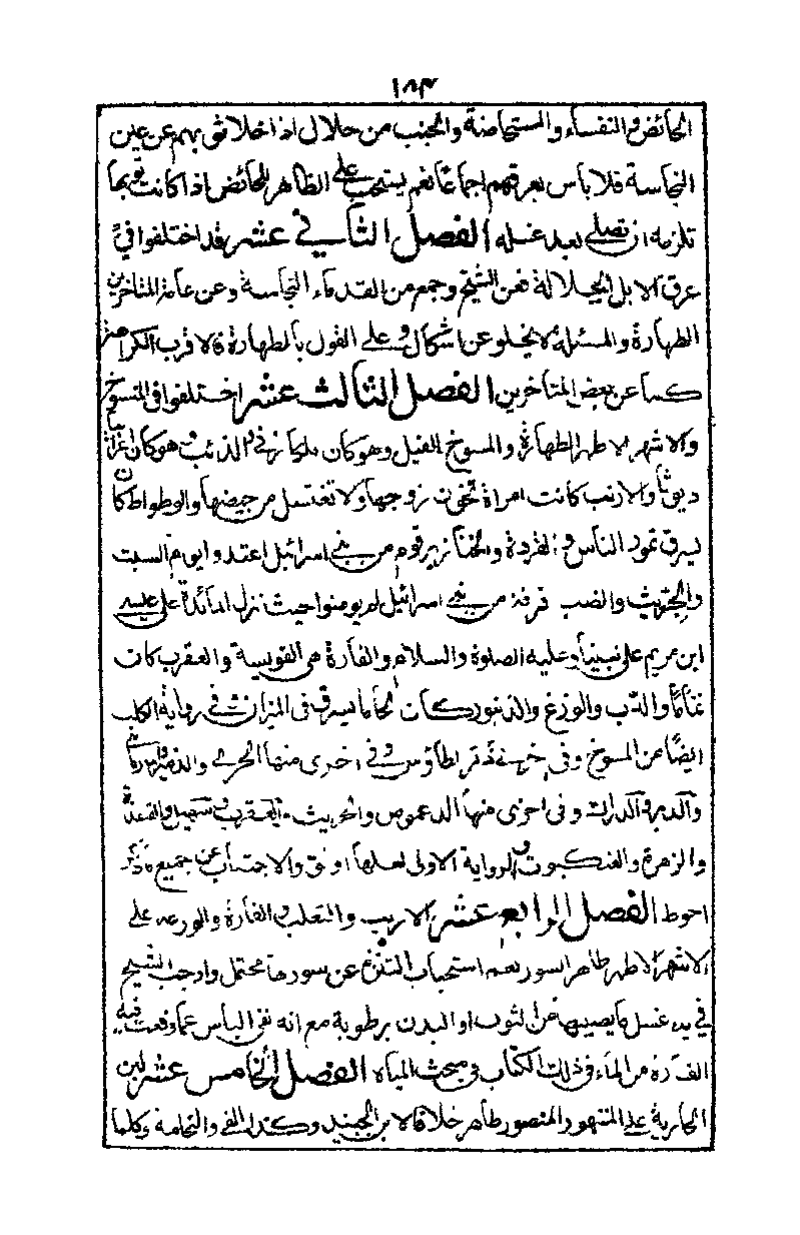 ١٨٣
الحائض والنفساء والمستحاضة والجنب من حلال اذا خلا ثوبهم عن عين
النجاسة فلا باس بعرقهم اجماعا نعم يستحب على الطاهر للحائض اذا كانت ثوبها
تلزمه ان تصلى بعد غسله الفصل الثاني عشر قد اختلفوا في
عرق الابل الجلالة فعن الشيخ وجمع من القدماء النجاسة وعن عامة المتاخرين
الطهارة والمسئلة لا تخلو عن اشكال وعلى القول بالطهارة فالاقرب الكراهة
كما عن بعض المتاخرين الفصل الثالث عشر اختلفوا في المسوخ
والاشهر الاظهر الطهارة والمسوخ الفيل وهو كان ملكا زنى والذئب وهو كان اعرابيا
ديوثا والارنب كانت امراة تخون زوجها ولا تغتسل من حيضها والوطواط كان
يسرق تمور الناس والقردة والخنازير قوم من بني اسرائيل اعتدوا يوم السبت
والجريث والضب فرقة من بني اسرائيل لم يومنوا حيث نزل المائدة على عيسى
ابن مريم على نبينا وعليه الصلوة والسلام والفارة هى الفويسقة والعقرب كان
نماما والدب والوزغ والزنبور كان لحاما يسرق فى الميزان وفي رواية الكلب
ايضا من المسوخ وفى اخرى ذكر الطاؤس وفي اخرى منها الجرى والمارماهى
والدبر وفى اخرى منها الدعموص والجريث والعقرب وسهيل والقنفذ
والزهرة والعنكبوت والرواية الاولى لعلها اوثق والاجتناب عن جميع ما ذكر
احوط الفصل الرابع عشر الارنب والثعلب والفارة والوزغه على
الاشهر الاظهر طاهر السور نعم استحباب التنزه عن سورها محتمل واوجب الشيخ
في غسل ما يصيبها من الثوب او البدن برطوبة مع انه نفى الباس عما وقعت فيه
الفارة من الماء فى ذلك الكتاب فى مبحث المياه الفصل الخامس عشر لبن
الجارية على المشهور المنصور طاهر خلافا لابن الجنيد وكذلك القى والنخامة وكلما